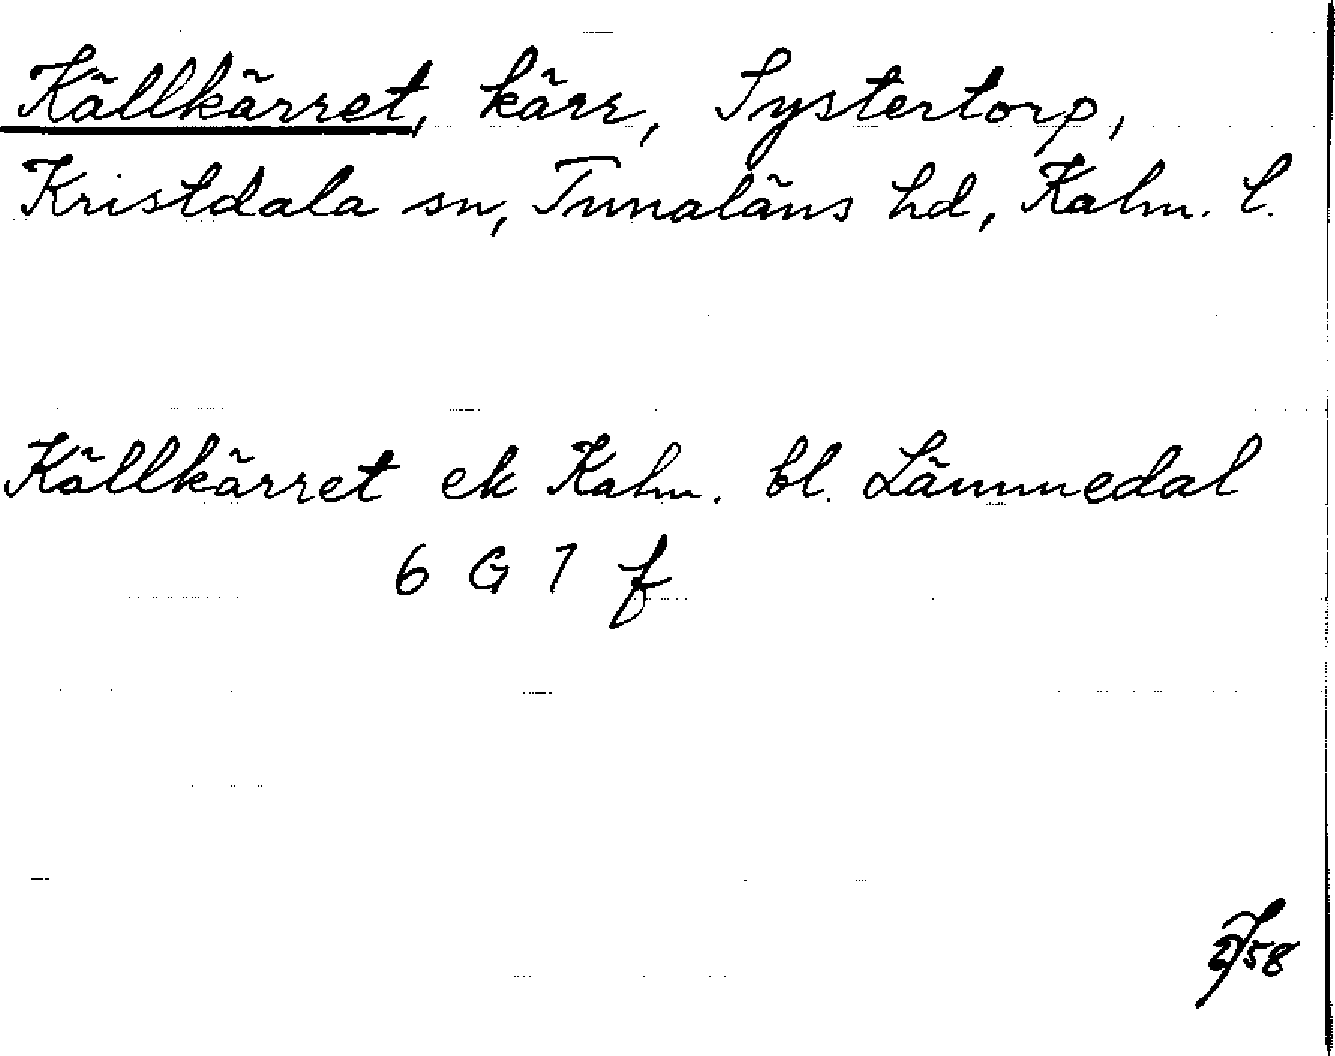 Källkärret, kärr, Systertorp,
Kristdala sn, Tunaläns hd, Kalm. l.
Källkärret ek Kalm. bl. Lämmedal
6 G 7 f
58